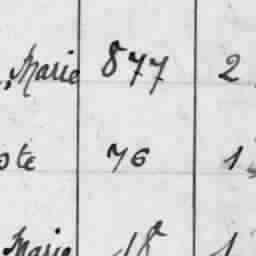 Marie 877 2
ste 76 1
Marie 18 1